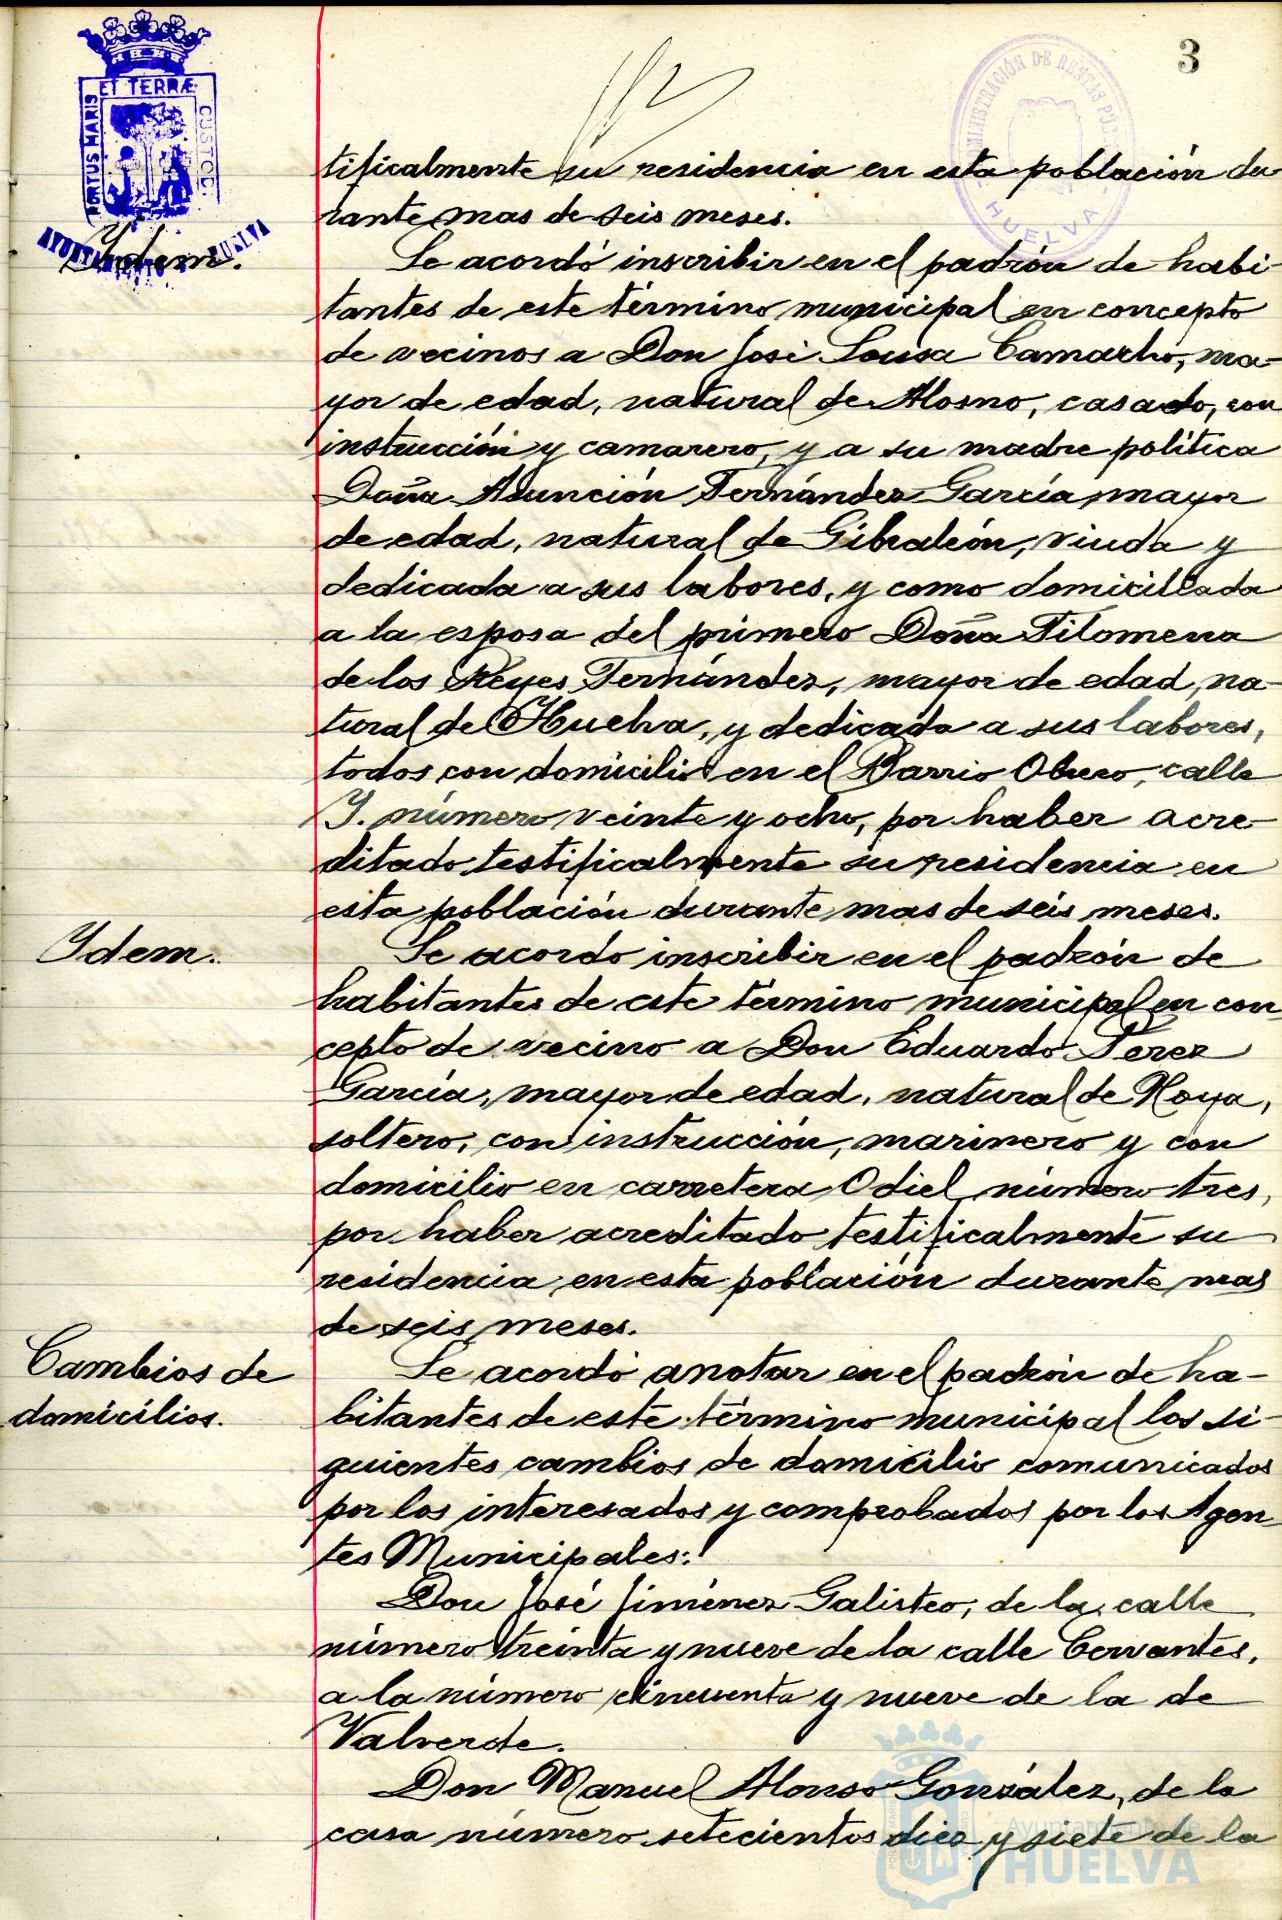 3
ET TERRÆ
PORTUS MARIS
CUSTOD.
AYUNTAMIENTO HUELVA
ADMINISTRACIÓN DE RENTAS PÚBLICAS
HUELVA
tificalmente su residencia en esta población du-
rante mas de seis meses.
Ydem.
Se acordó inscribir en el padrón de habi-
tantes de este término municipal en concepto
de vecinos a Don José Sousa Camacho, ma-
yor de edad, natural de Alosno, casado, con
instrucción y camarero, y a su madre política
Doña Asunción Fernández García, mayor
de edad, natural de Gibraleón, viuda y
dedicada a sus labores, y como domiciliada
a la esposa del primero Doña Filomena
de los Reyes Fernández, mayor de edad, na-
tural de Huelva, y dedicada a sus labores,
todos con domicilio en el Barrio Obrero, calle
Y. número veinte y ocho, por haber acre-
ditado testificalmente su residencia en
esta población durante mas de seis meses.
Ydem.
Se acordó inscribir en el padrón de
habitantes de este término municipal en con
cepto de vecino a Don Eduardo Perez
García, mayor de edad, natural de Noya,
soltero, con instrucción, marinero y con
domicilio en carretera Odiel número tres,
por haber acreditado testificalmente su
residencia en esta población durante mas
de seis meses.
Cambios de
domicilios.
Se acordó anotar en el padrón de ha-
bitantes de este término municipal los si-
guientes cambios de domicilio comunicados
por los interesados y comprobados por los Agen
tes Municipales:
Don José Jiménez Galisteo, de la calle
número treinta y nueve de la calle Cervantes,
a la número cincuenta y nueve de la de
Valverde.
Don Manuel Alonso González, de la
casa número setecientos diez y siete de la
Ayuntamiento de
HUELVA